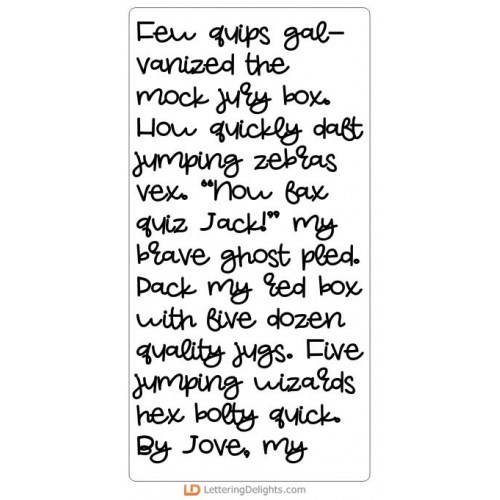 Few quips gal-
vanized the
mock jury box.
How quickly daft
jumping zebras
vex. "Now fax
quiz Jack!" my
brave ghost pled.
Pack my red box
with five dozen
quality jugs. Five
jumping wizards
hex bolty quick.
By Jove, my
LD LetteringDelights.com